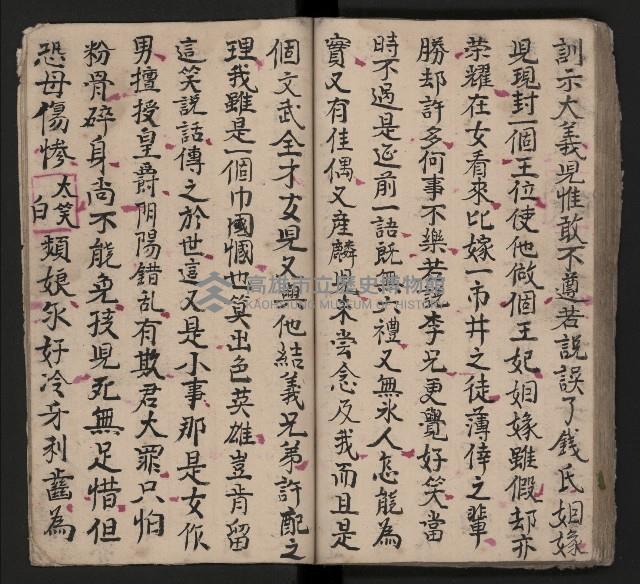 訓示大義児惟敢不遵若說誤了錢氏姻嫁
児現封一個王位使他做個王妃姻嫁雖假却亦
榮耀在女看來比嫁一市井之徒薄倖之輩
勝却許多何事不樂若李兄更覺好笑當
時不過是延前一語既無六禮又無氷人怎能為
實又有佳偶又産麟児未尝念及我而且是
個文武全才女児又與他結義兄弟許配之
理我雖是一個巾幗幗也算出色英雄豈肯留
這笑説話傳之於世這又是小事那是女作
男擅授皇爵阴陽錯乱有欺君大罪只怕
粉骨碎身尚不能免孩児死無足惜但
恐母傷惨 太笑白 頪娘永好冷牙利齒為
高雄市立歷史博物館
KAOHSIUNG MUSEUM OF HISTORY